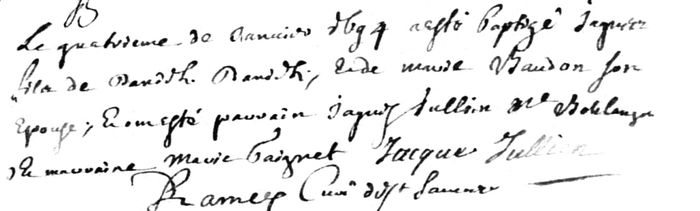 B
Le quatrieme de Janvier 1694 a esté baptizé Jaques
fils de et de marie Baudon son
Epouse; Et ont esté parrain Jaques Jullien Me Boulanger
Et marraine marie Jacque Jullien
Curé de St Sauveur